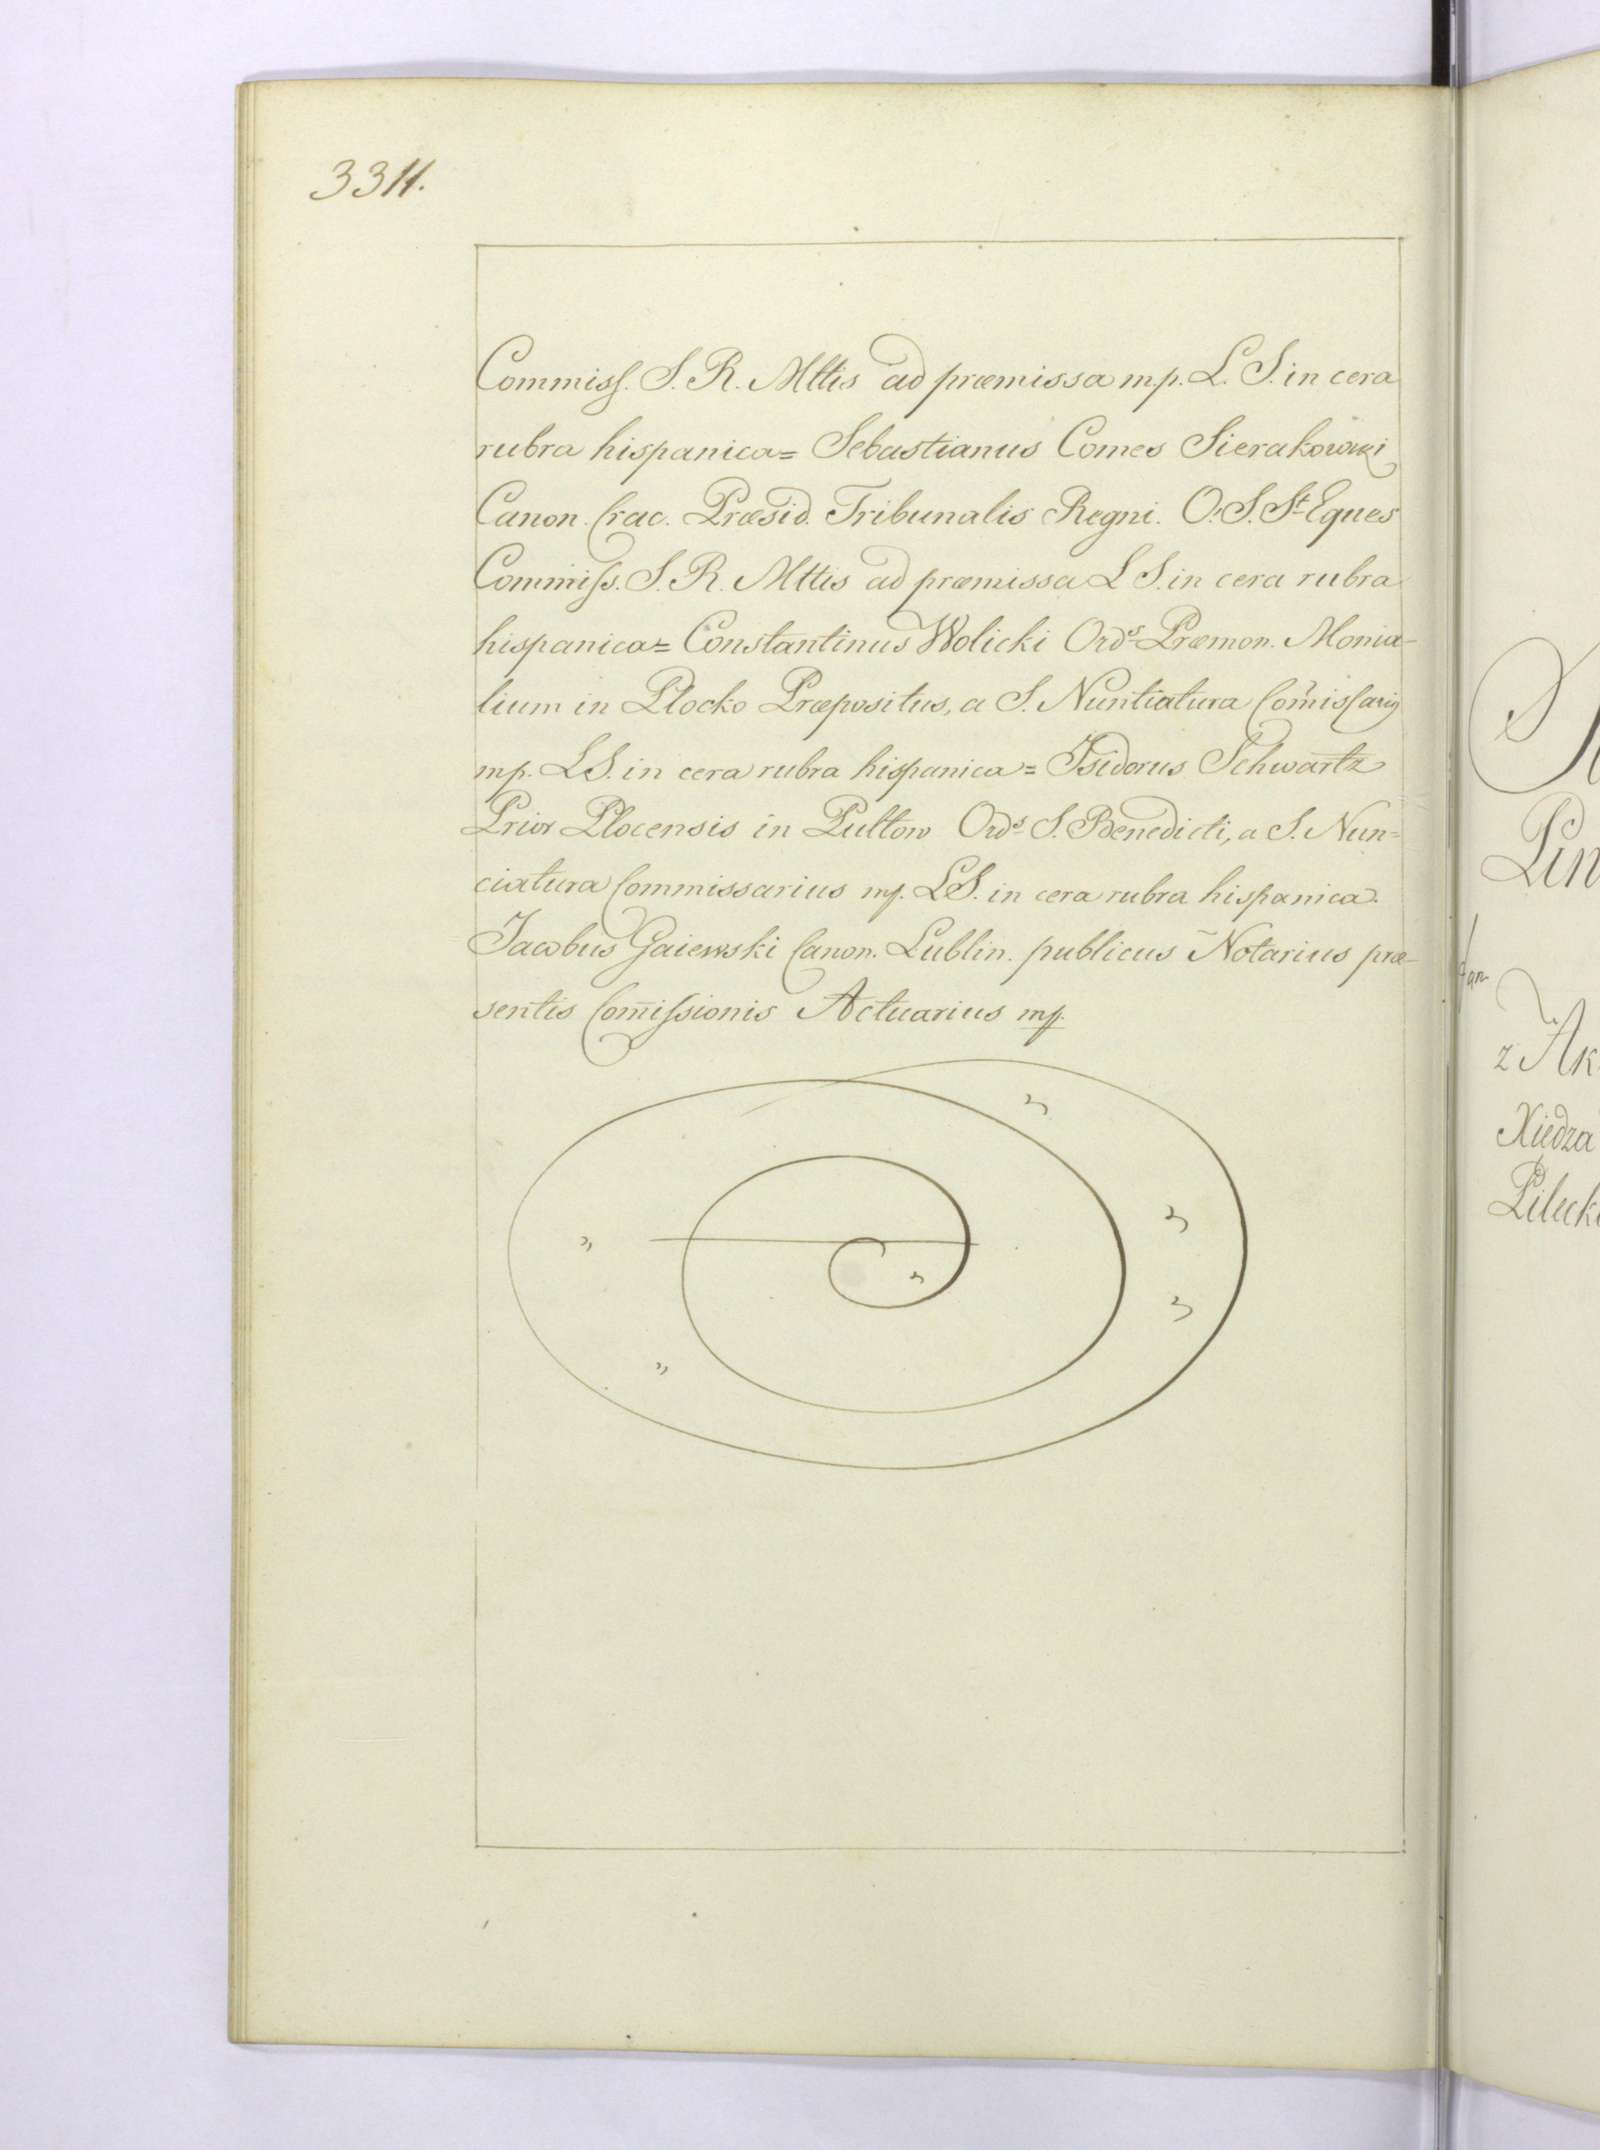 3311.
Commiss. S. R. Mttis ad præmissa mp. L. S. in cera
rubra hispanica= Sebastianus Comes Sierakowski
Canon. Crac. Præsid. Tribunalis Regni. O. S. St Eques
Commiss. S. R. Mttis ad præmissa L S. in cera rubra
hispanica= Constantinus Wolicki Ords Præmon. Monia-
lium in Plocko Præpositus, a S. Nuntiatura Com̃issariꝯ
mp. LS. in cera rubra hispanica= Isidorus Schwartz
Prior Plocensis in Pultow Ords S. Benedicti, a S. Nun=
ciatura Commissarius mp. LS. in cera rubra hispanica.
Jacobus Gaiewski Canon. Lublin. publicus Notarius præ-
sentis Com̃issionis Actuarius mp.
Pin
z Ak
Xiedza
Pileck